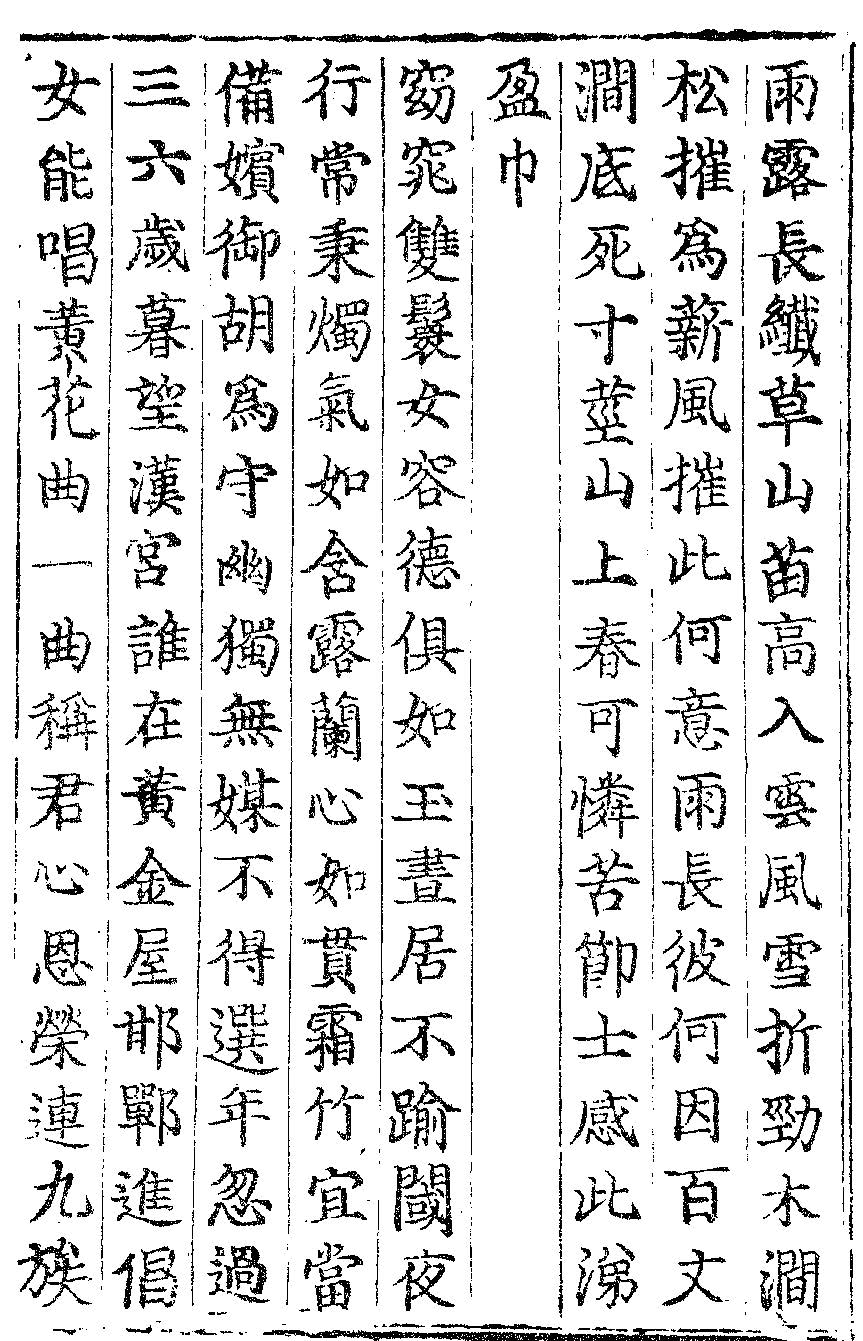 雨露長纖草山苗高入雲風雪折勁木澗
松摧爲薪風摧此何意雨長彼何因百丈
澗底死寸莖山上春可憐苦節士感此涕
盈巾
窈窕雙鬟女容德俱如玉晝居不踰閾夜
行常秉燭氣如含露蘭心如貫霜竹宜當
備嬪御胡爲守幽獨無媒不得選年忽過
三六歲暮望漢宮誰在黃金屋邯鄲進倡
女能唱黃花曲一曲稱君心恩榮連九族